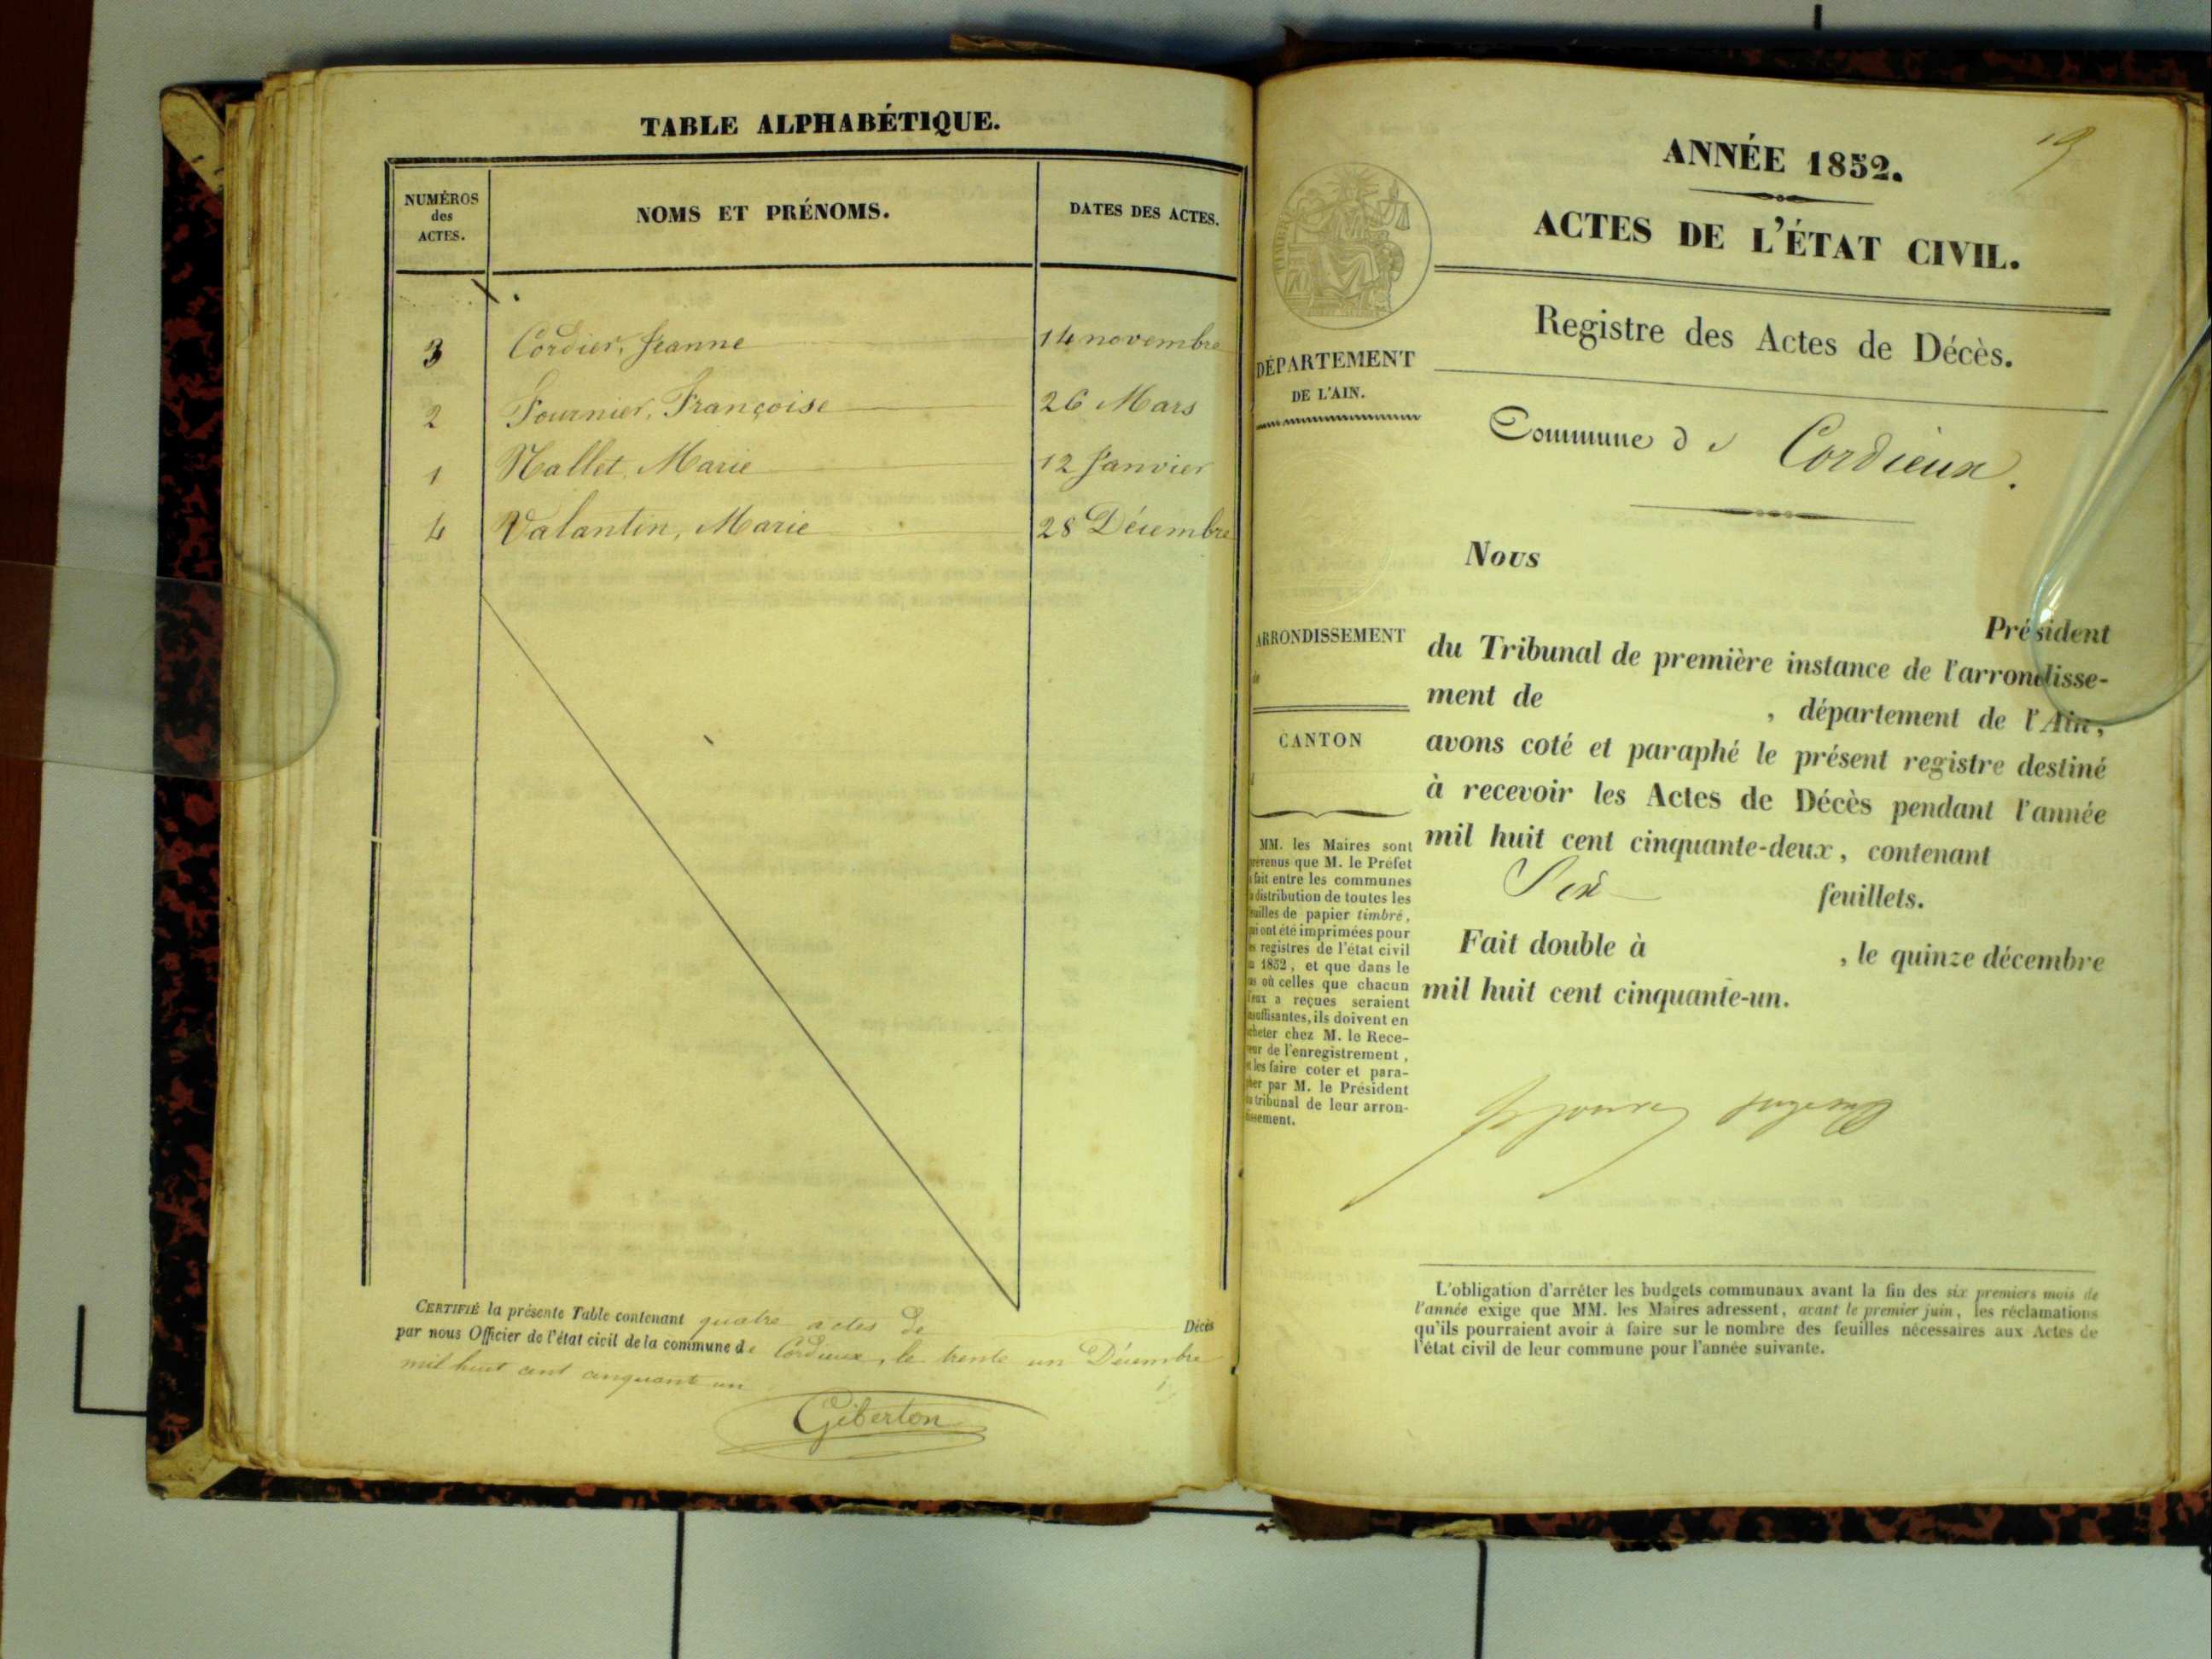 TABLE ALPHABÉTIQUE.
NUMÉROS
des
ACTES.
NOMS ET PRÉNOMS.
DATES DES ACTES.
3 Cordier, Jeanne 14 novembre
2 Fournier, Françoise 26 Mars
1 Nallet, Marie 12 Janvier
4 Valantin, Marie 28 Décembre
CERTIFIÉ la présente Table contenant quatre actes de Décès
par nous Officier de l'état civil de la commune de Cordieux, le trente un Décembre
mil huit cent cinquant un
Giberton
19
ANNÉE 1852.
ACTES DE L'ÉTAT CIVIL.
Registre des Actes de Décès.
DÉPARTEMENT
DE L'AIN.
Commune de Cordieux.
Nous
Président
ARRONDISSEMENT
du Tribunal de première instance de l'arrondisse-
ment de , département de l'Ain,
CANTON
avons coté et paraphé le présent registre destiné
à recevoir les Actes de Décès pendant l'année
mil huit cent cinquante-deux, contenant
Six feuillets.
Fait double à , le quinze décembre
mil huit cent cinquante-un.
MM. les Maires sont
prévenus que M. le Préfet
a fait entre les communes
la distribution de toutes les
feuilles de papier timbré,
qui ont été imprimées pour
les registres de l'état civil
en 1852, et que dans le
cas où celles que chacun
d'eux a reçues seraient
insuffisantes, ils doivent en
acheter chez M. le Rece-
veur de l'enregistrement,
et les faire coter et para-
pher par M. le Président
du tribunal de leur arron-
dissement.
L'obligation d'arrêter les budgets communaux avant la fin des six premiers mois de
l'année exige que MM. les Maires adressent, avant le premier juin, les réclamations
qu'ils pourraient avoir à faire sur le nombre des feuilles nécessaires aux Actes de
l'état civil de leur commune pour l'année suivante.